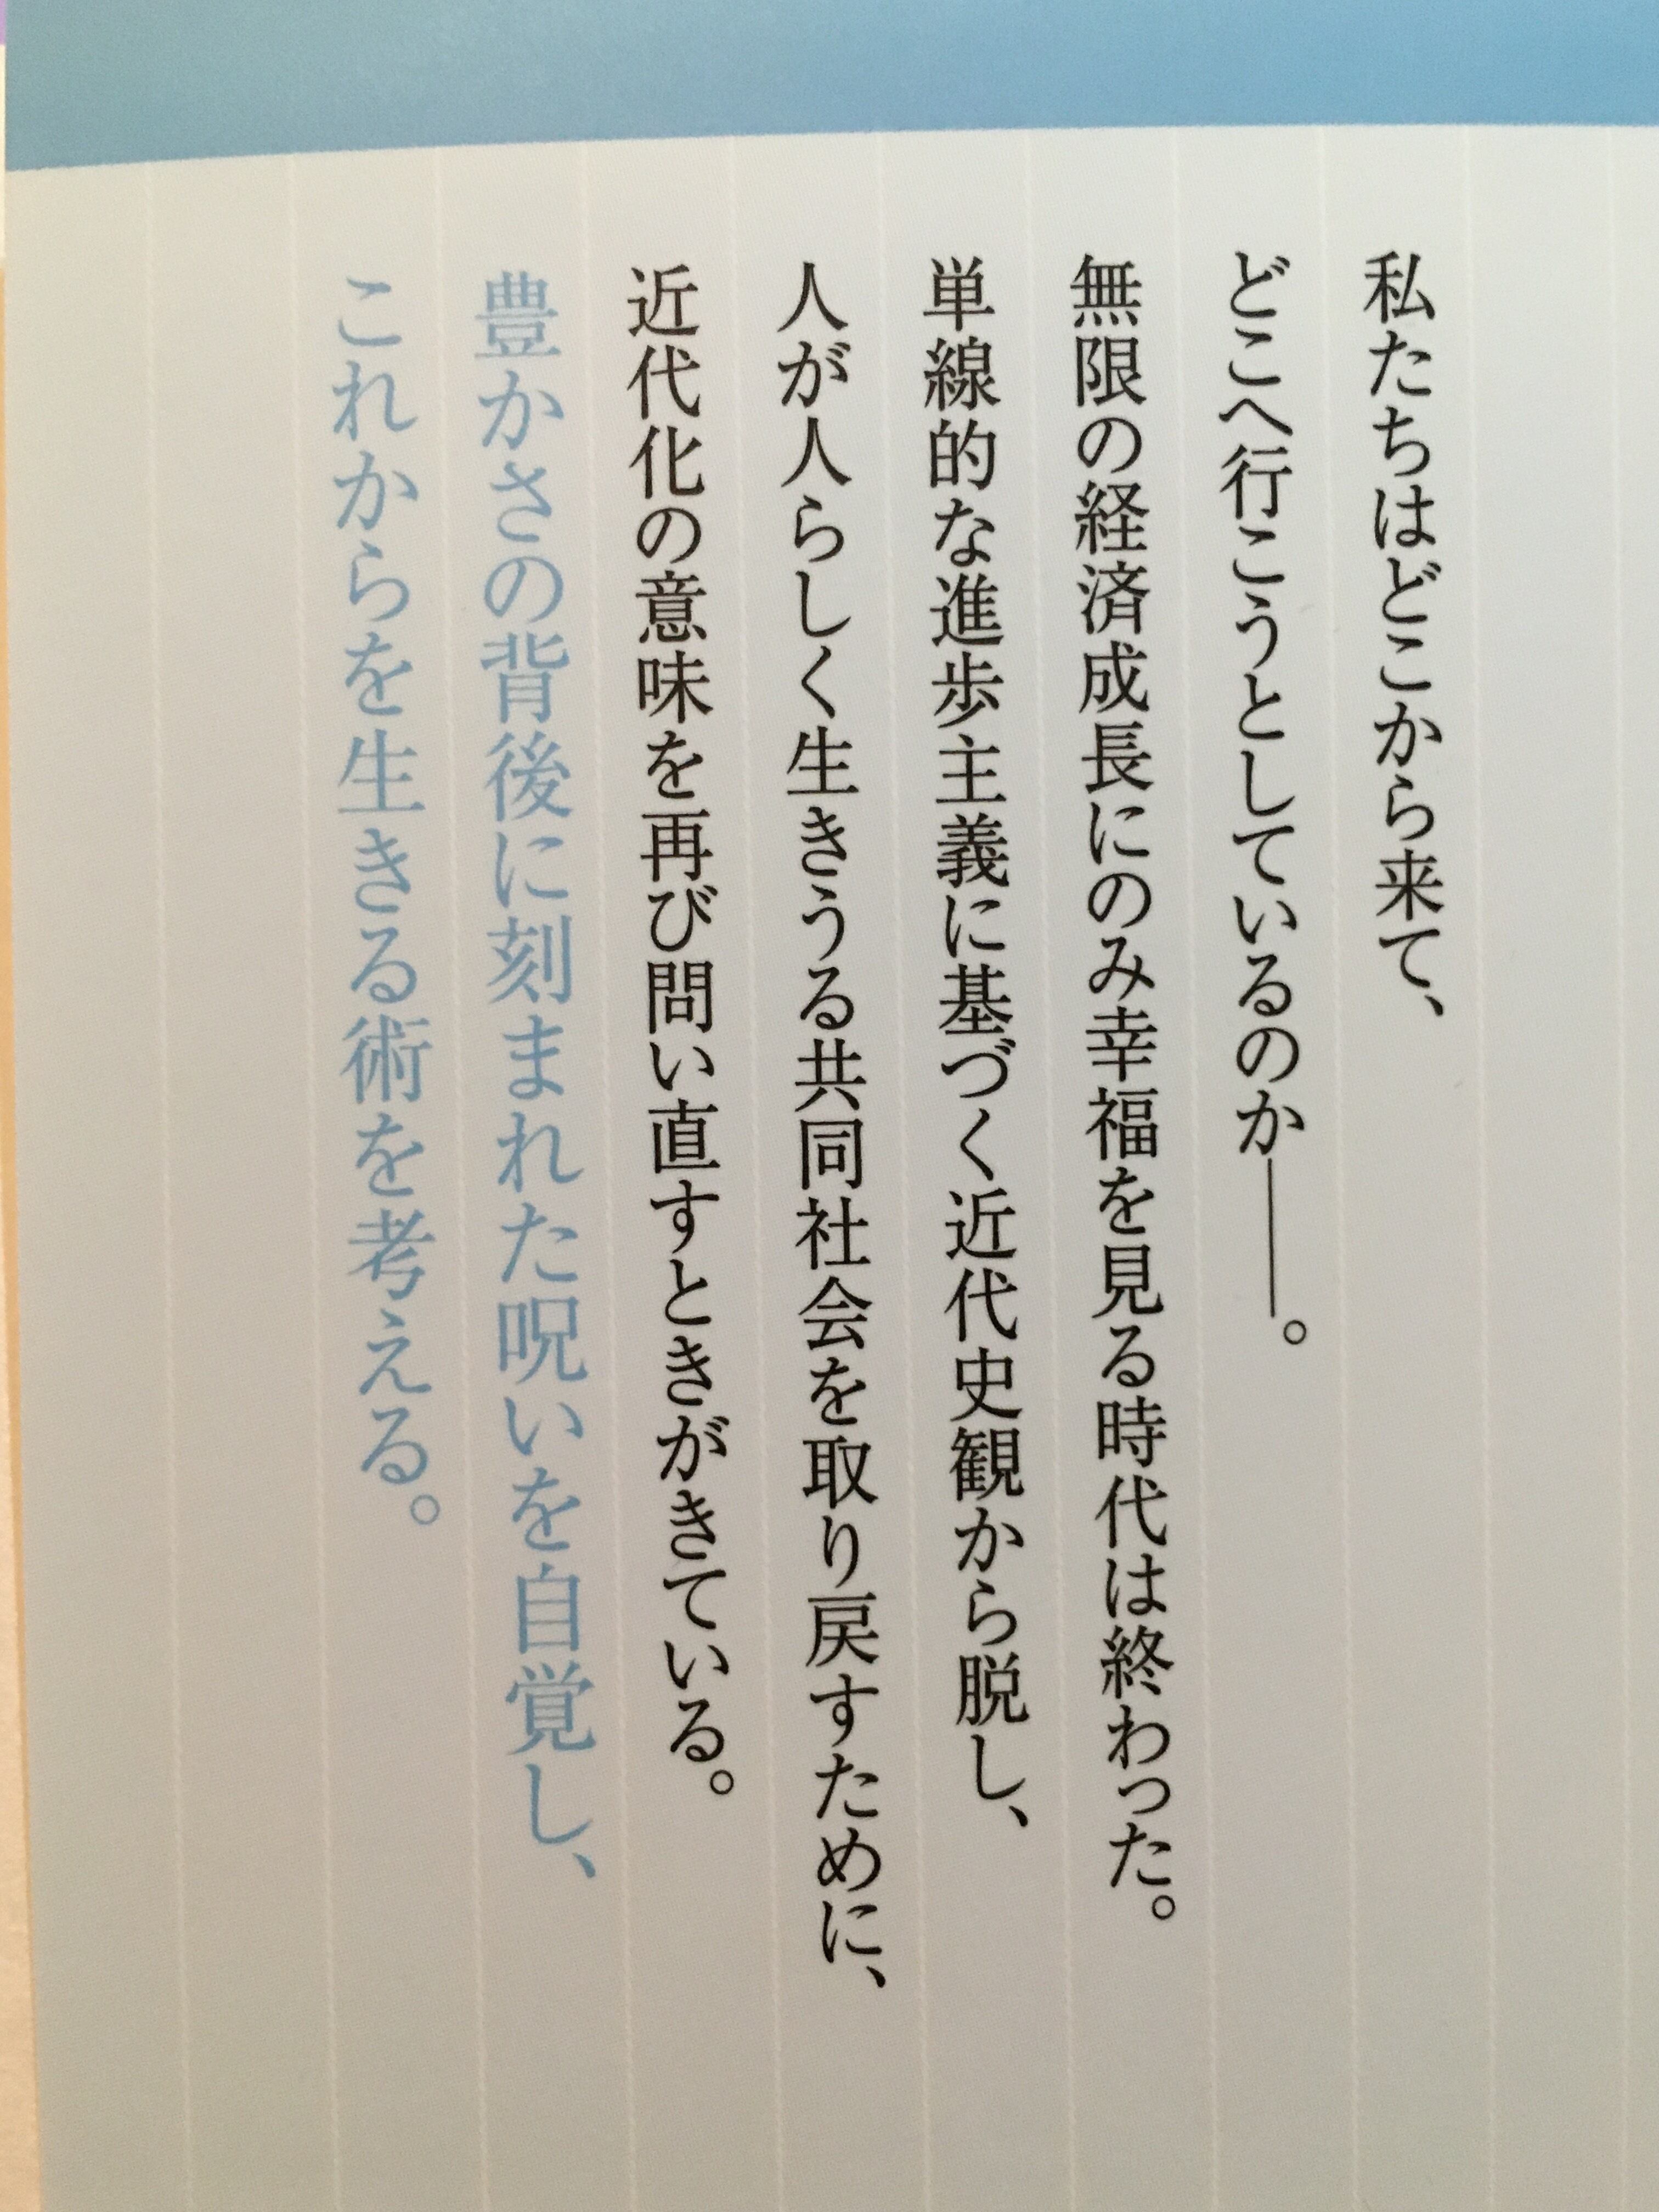 私たちはどこから来て、
どこへ行こうとしているのか――。
無限の経済成長にのみ幸福を見る時代は終わった。
単線的な進歩主義に基づく近代史観から脱し、
人が人らしく生きうる共同社会を取り戻すために、
近代化の意味を再び問い直すときがきている。
豊かさの背後に刻まれた呪いを自覚し、
これからを生きる術を考える。